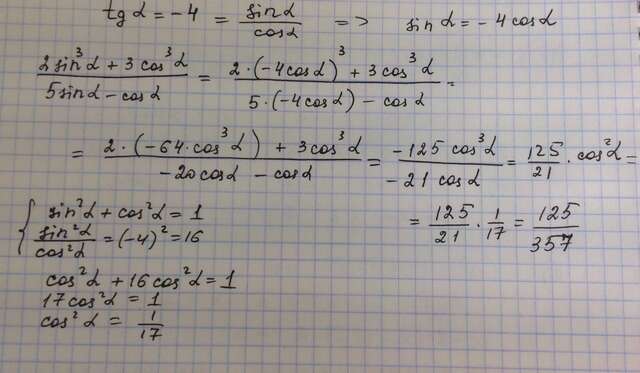 tg α = -4 = sin α / cos α => sin α = -4 cos α
(2 sin³α + 3 cos³α) / (5 sin α - cos α) = (2·(-4 cos α)³ + 3 cos³α) / (5·(-4 cos α) - cos α) =
= (2·(-64·cos³α) + 3 cos³α) / (-20 cos α - cos α) = (-125 cos³α) / (-21 cos α) = 125/21 · cos²α =
{ sin²α + cos²α = 1
sin²α / cos²α = (-4)² = 16
= 125/21 · 1/17 = 125/357
cos²α + 16 cos²α = 1
17 cos²α = 1
cos²α = 1/17